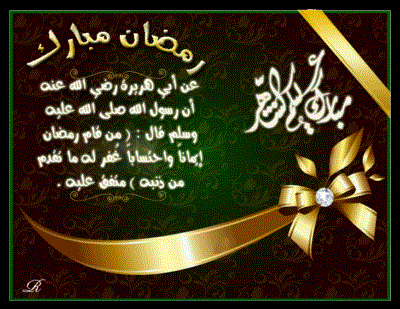 رمضان مبارك
عن أبي هريرة رضي الله عنه
أن رسول الله صلى الله عليه
وسلم قال : ( من قام رمضان
إيماناً واحتساباً غُفر له ما تقدم
من ذنبه ) متفق عليه .
مبارك عليكم الشهر
R